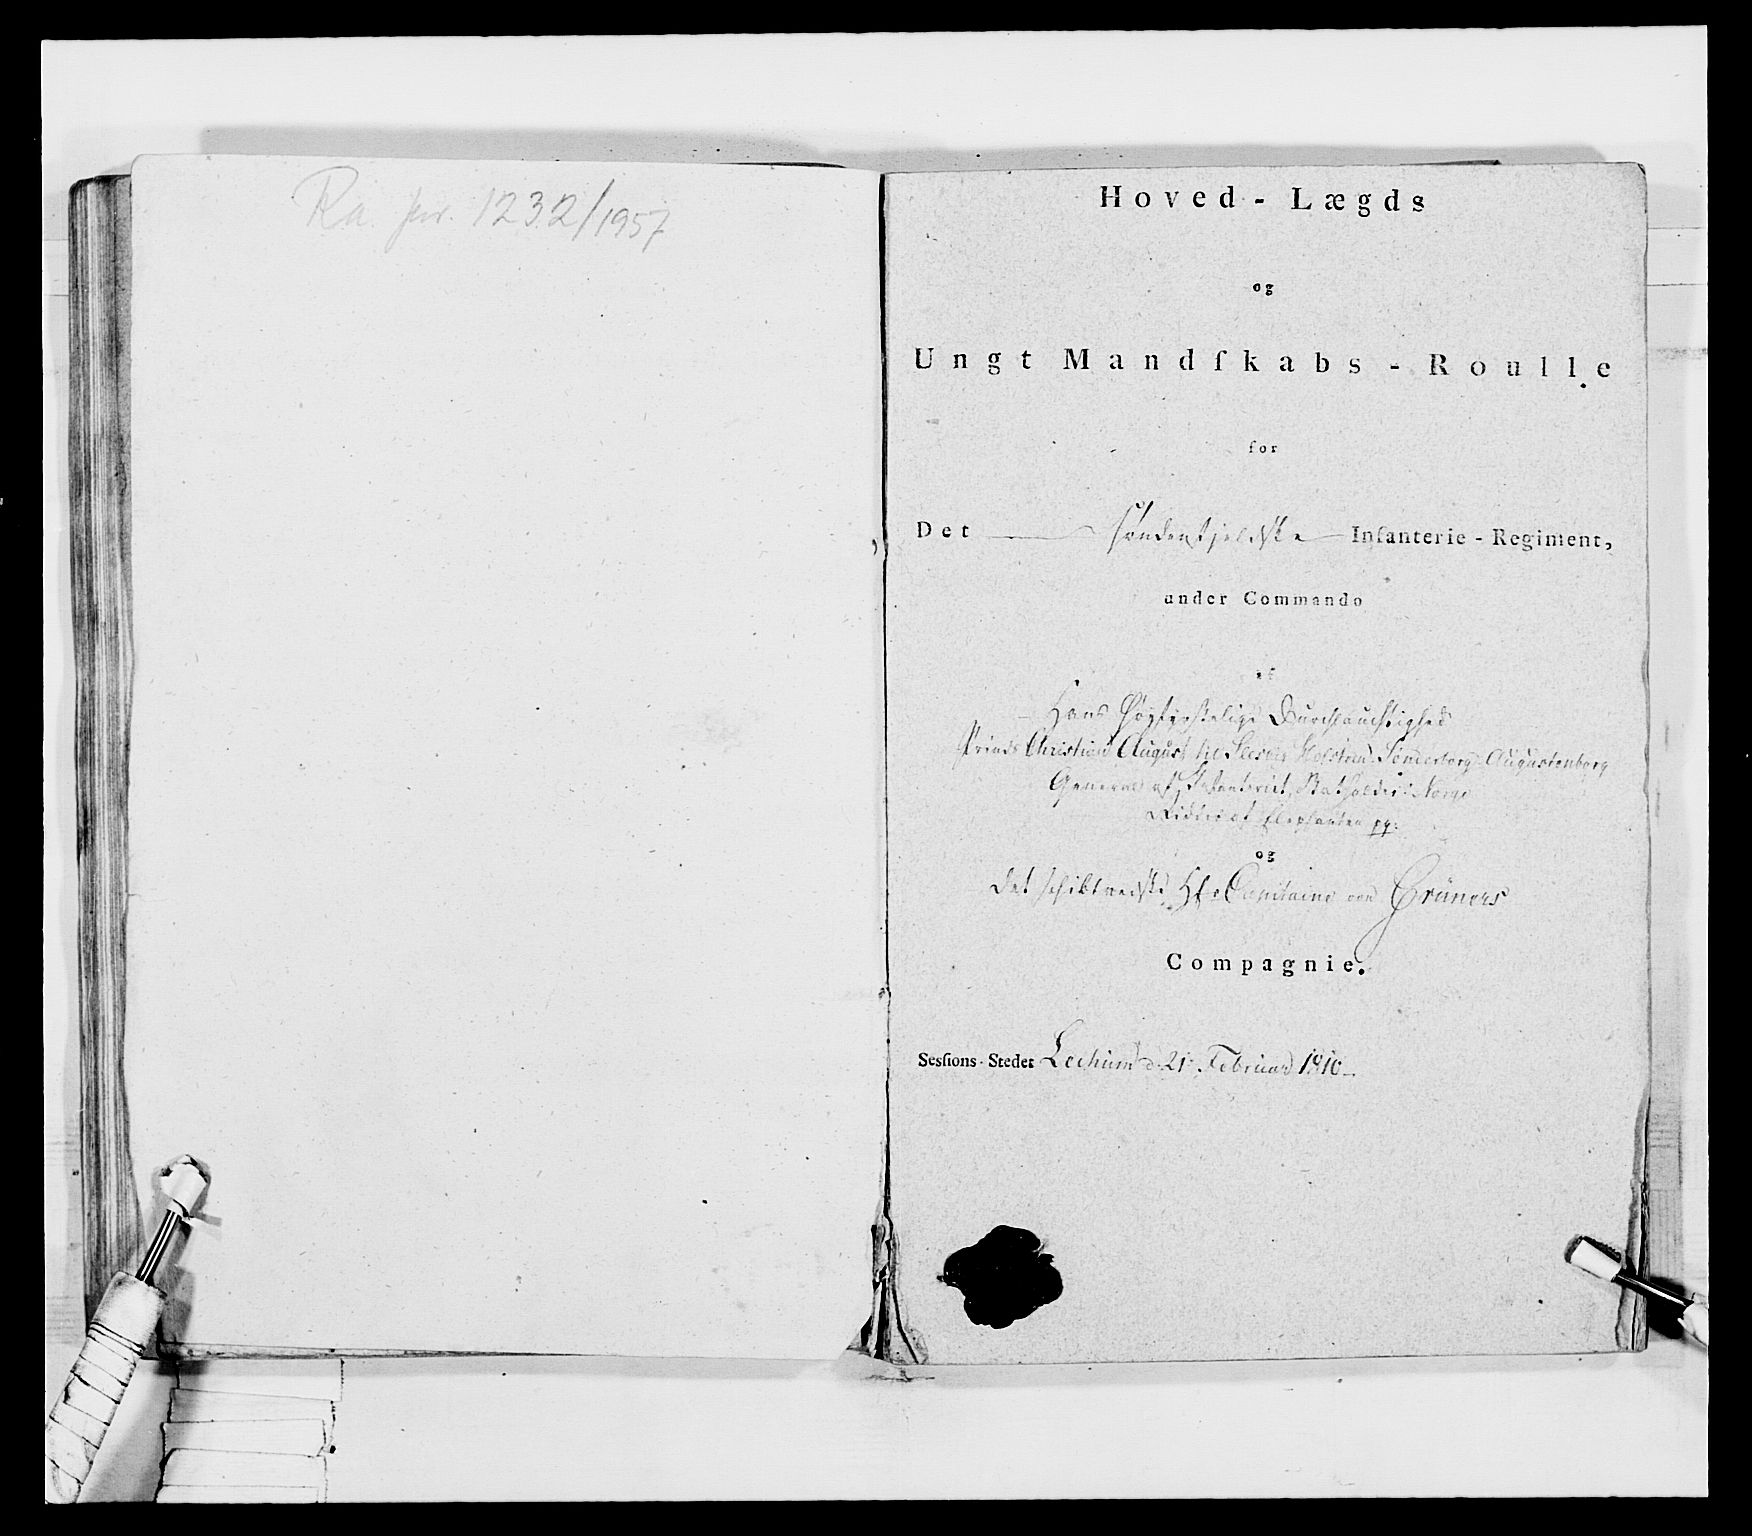 Ra. jnr. 1232/1957
Hoved - Lægds
og
Ungt Mandſkabs - Roulle
for
Det søndenfjeldske Infanterie - Regiment,
under Commando
af
Hans Høyfyrstelige Durchlauchtighed
Prinds Christian August til Slesvig Holsteen Sønderborg Augustenborg
General af Infanteriet, Statholder i Norge
Ridder af Elephanten pp:
og
det schibtvedtske Capitaine von Grüners
Compagnie.
Sesſions-Stedet Lechum d 21 Februar 1810